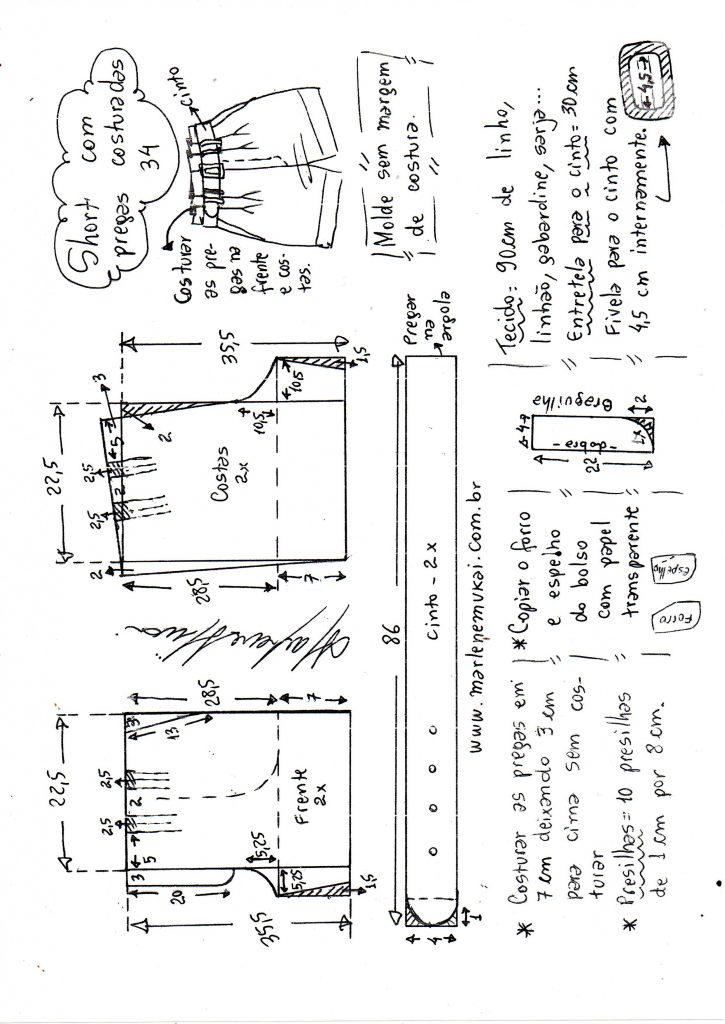 Short com
pregas costuradas
34
cinto
Costurar
as pre-
gas na
frente
e cos-
tas.
Molde sem margem
de costura.
22,5
2,5
2,5
3
5
2
3
13
20
28,5
7
35,5
5,25
5,25
1,5
Frente
2x
22,5
2
2,5
2,5
3
5
2
2
28,5
7
35,5
10,5
10,5
1,5
Costas
2x
86
4
1
cinto - 2x
Pregar
na
argola
www.marlenemukai.com.br
* Costurar as pregas em
7 cm deixando 3 cm
para cima sem cos-
turar
* Presilhas = 10 presilhas
de 1 cm por 8 cm.
* Copiar o forro
e espelho
do bolso
com papel
transparente
Forro
Espelho
4
22
- dobra -
2
Braguilha
2x
Tecido: 90 cm de linho,
linhão, gabardine, sarja...
Entretela para o cinto = 30 cm
Fivela para o cinto com
4,5 cm internamente.
4,5